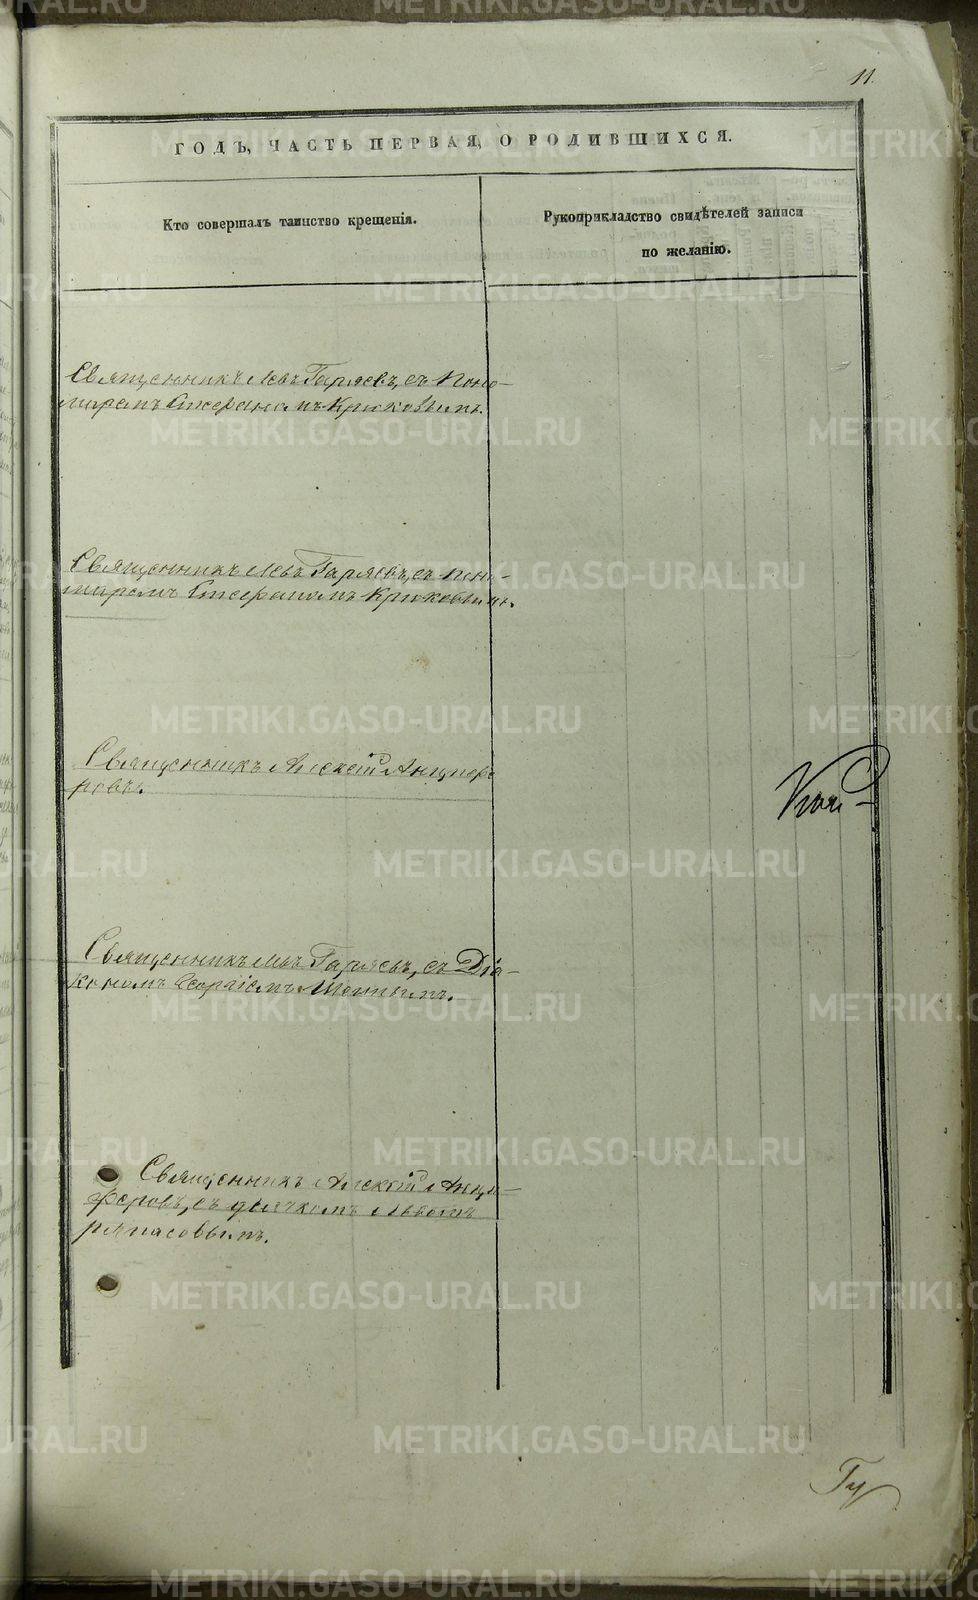 11.
ГОДЪ, ЧАСТЬ ПЕРВАЯ, О РОДИВШИХСЯ.
Кто совершалъ таинство крещенія.
Рукоприкладство свидѣтелей записи
по желанію.
Священникъ Левъ Гаряевъ, съ Поно-
маремъ Стефаномъ Крюковымъ.
Священникъ Левъ Гаряевъ, съ Поно-
маремъ Стефаномъ Крюковымъ.
Священникъ Алексій Анциферо
ровъ.
Священникъ Левъ Гаряевъ, съ Діа-
кономъ Георгіемъ
Священникъ Алексій Анци-
феровъ, съ дьячкомъ Львомъ
METRIKI.GASO-URAL.RU